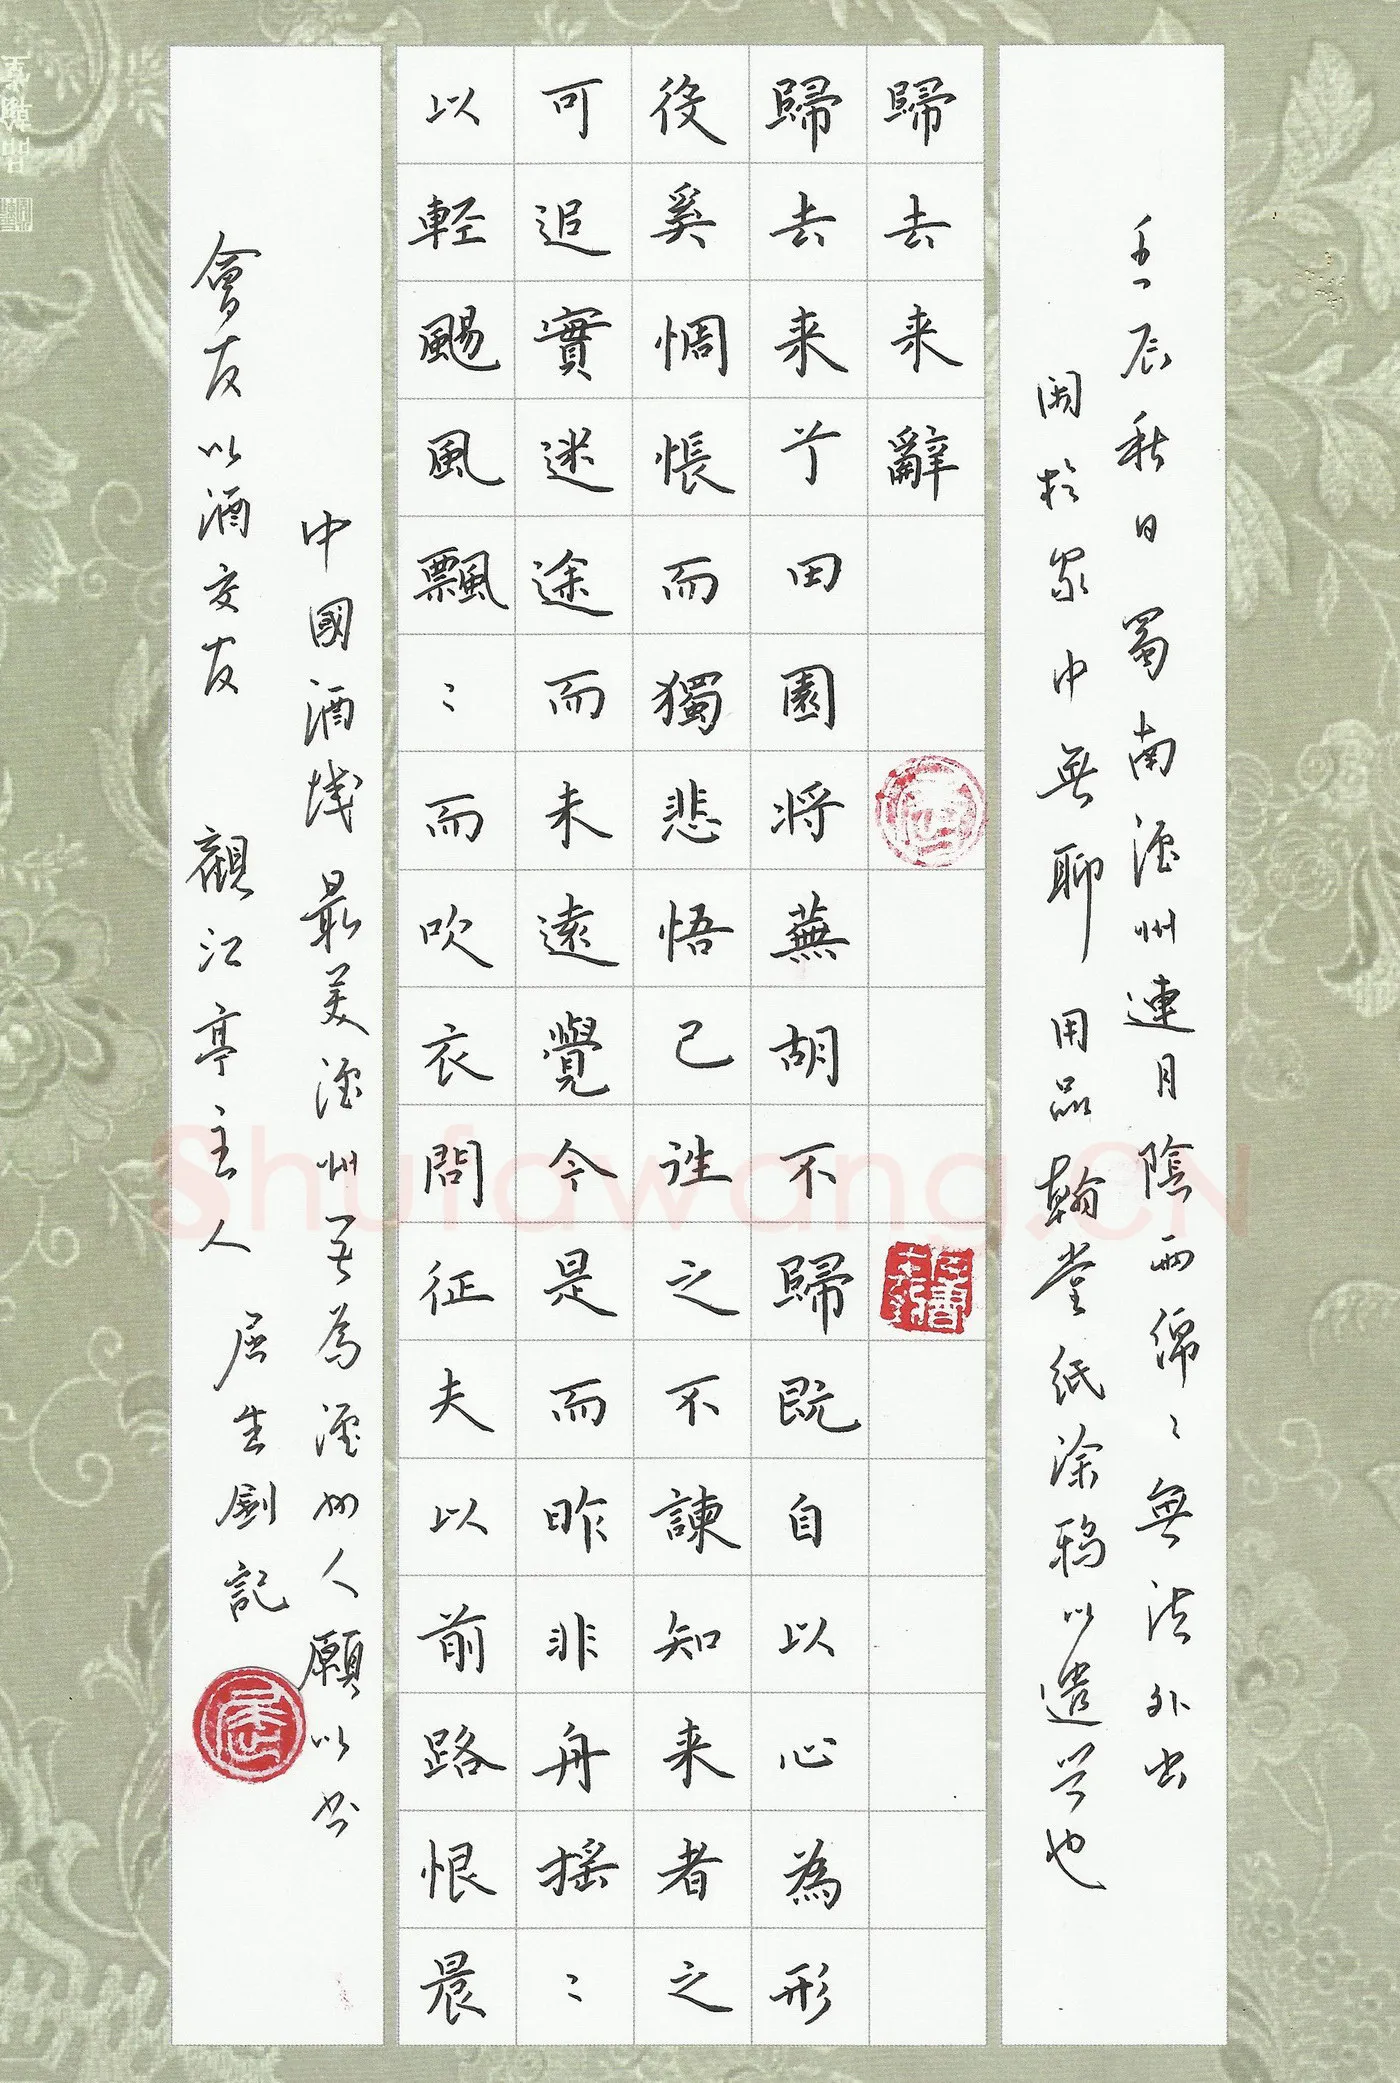 壬辰秋日蜀南酒州連月陰雨綿〻無法外出
閑於家中無聊用品翰堂紙涂鴉以遣興也
歸去来辭
歸去来兮田園将蕪胡不歸既自以心為形
役奚惆悵而獨悲悟已往之不諫知来者之
可追實迷途而未遠覺今是而昨非舟摇〻
以輕颺風飄〻而吹衣問征夫以前路恨晨
中國酒城最美酒州吾為酒州人願以書
會友以酒交友 觀江亭主人 屈生劍記
Shufawang.CN